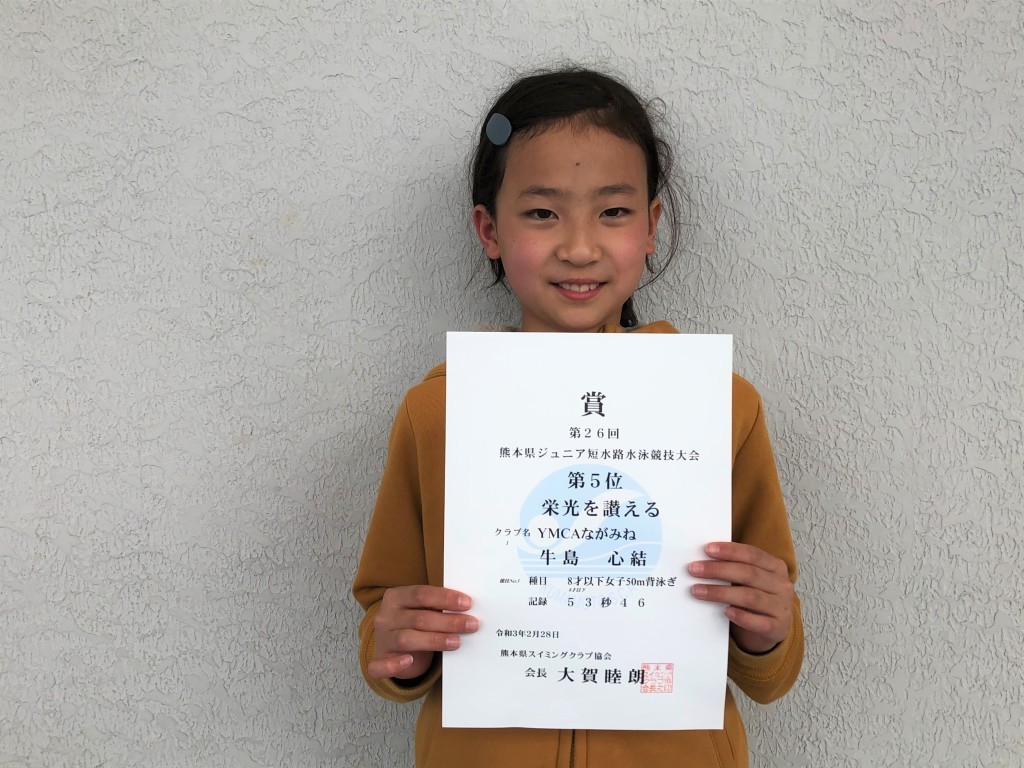 賞
第２６回
熊本県ジュニア短水路水泳競技大会
第５位
栄光を讃える
クラブ名 YMCAながみね
牛島 心結
競技No.5 種目 8才以下女子50m背泳ぎ
記録 ５３秒４６
令和3年2月28日
熊本県スイミングクラブ協会
会長 大賀睦朗